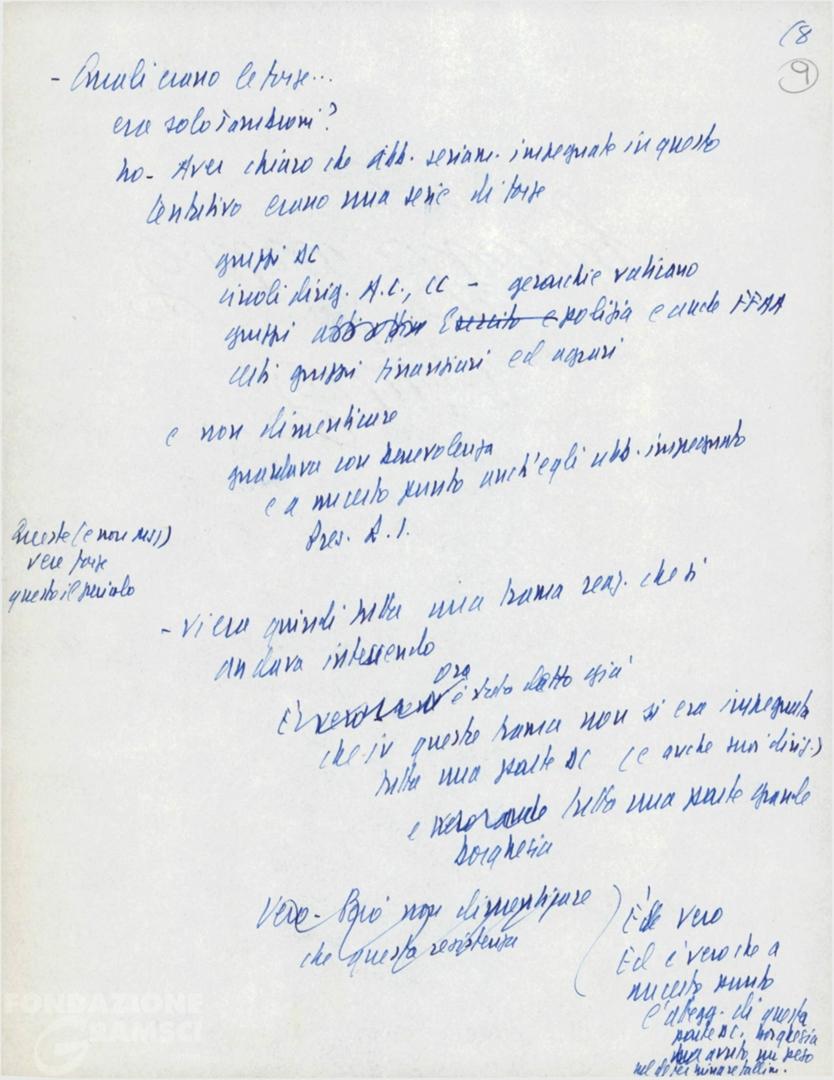 18
9
- Quali erano le forze...
era solo Tambroni?
no - Aver chiaro che abb. seriam. impegnate in questo
tentativo erano una serie di forze
gruppi DC
circoli dirig. A.C., CC - gerarchie vaticano
gruppi Esercito e polizia e anche FFAA
certi gruppi finanziari ed agrari
e non dimenticare
guardava con benevolenza
e a un certo punto anch'egli abb. impegnato
Pres. R. I.
Queste (e non MSI)
vere forze
questo il pericolo
- Vi era quindi tutta una trama reaz. che si
andava intessendo
Ora
È vero è stato detto già
che in questa trama non si era impegnata
tutta una parte DC (e anche suoi dirig.)
e tutta una parte grande
borghesia
Vero - Però non dimenticare
che questa resistenza
È vero
Ed è vero che a
un certo punto
l'atteg. di questa
parte DC, borghesia
ha avuto un peso
nel determinare fallim.
FONDAZIONE
GRAMSCI